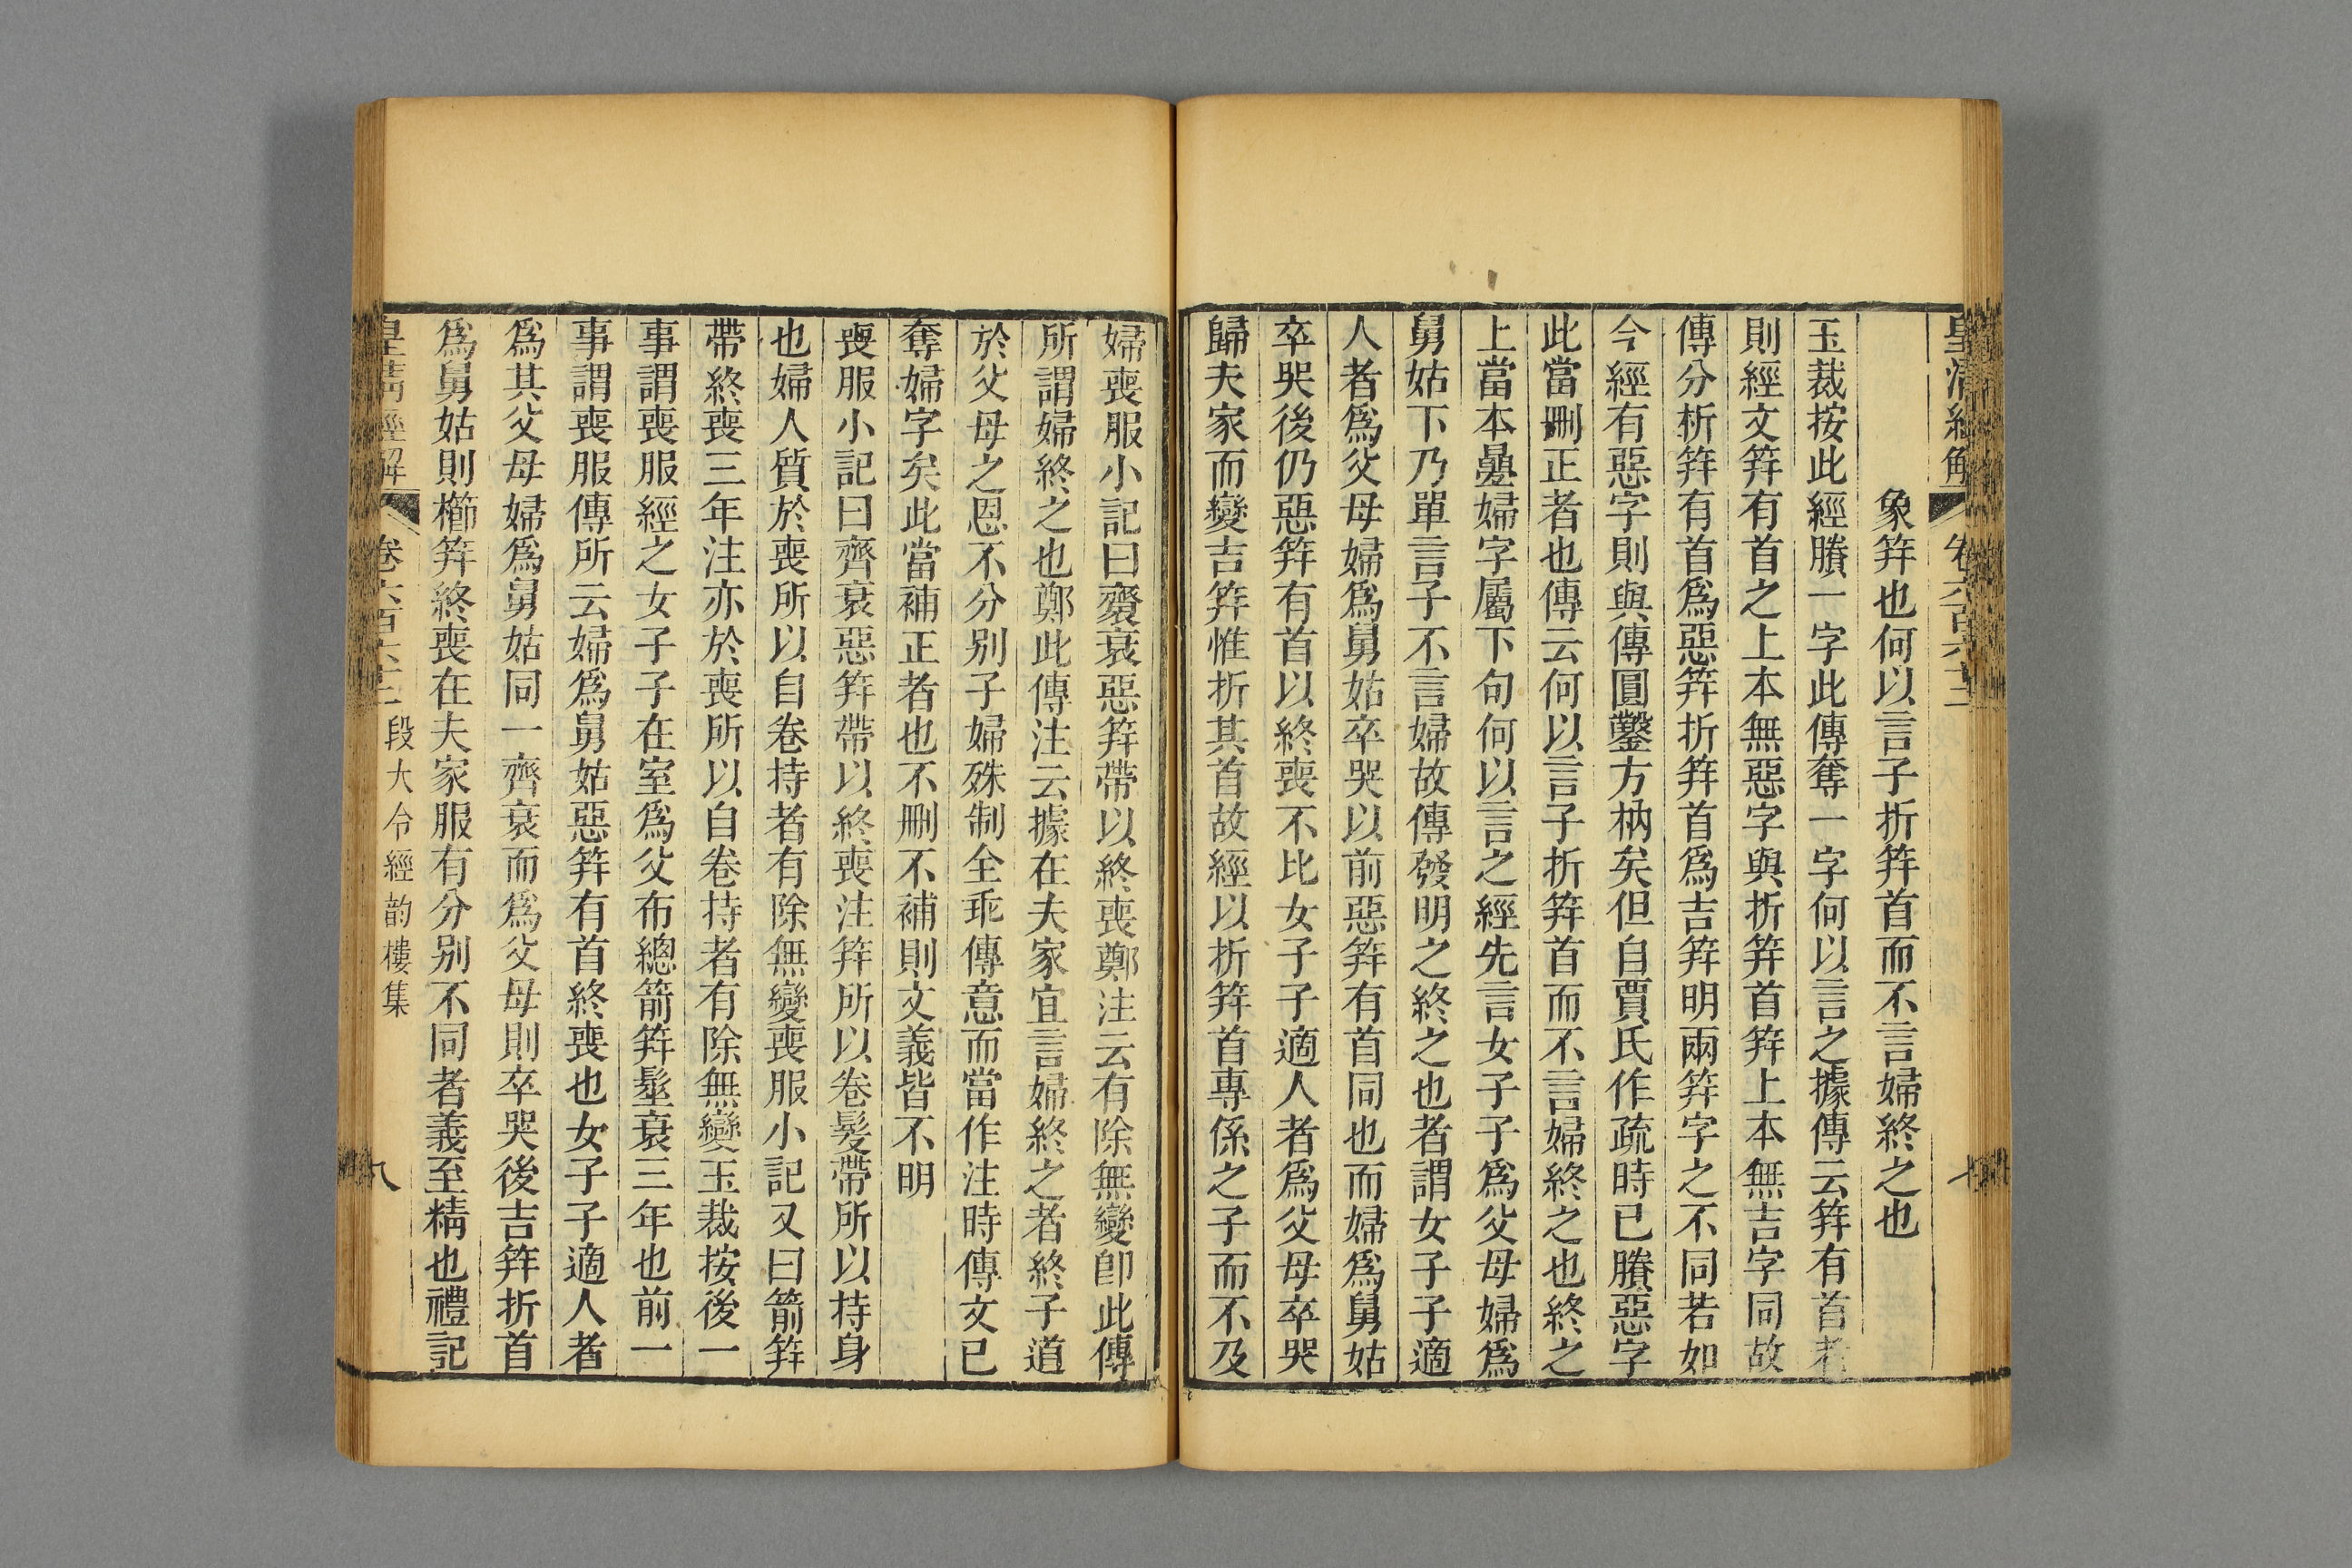 皇清經解 卷六百六十二
象笄也何以言子折笄首而不言婦終之也
玉裁按此經賸一字此傳奪一字何以言之據傳云笄有首者
則經文笄有首之上本無惡字與折笄首笄上本無吉字同故
傳分析笄有首爲惡笄折笄首爲吉笄明兩笄字之不同若如
今經有惡字則與傳圓鑿方枘矣但自賈氏作疏時已賸惡字
此當刪正者也傳云何以言子折笄首而不言婦終之也終之
上當本曡婦字屬下句何以言之經先言女子子爲父母婦爲
舅姑下乃單言子不言婦故傳發明之終之也者謂女子子適
人者爲父母婦爲舅姑卒哭以前惡笄有首同也而婦爲舅姑
卒哭後仍惡笄有首以終喪不比女子子適人者爲父母卒哭
歸夫家而變吉笄惟折其首故經以折笄首專係之子而不及
婦喪服小記曰齌衰惡笄帶以終喪鄭注云有除無變卽此傳
所謂婦終之也鄭此傳注云據在夫家宜言婦終之者終子道
於父母之恩不分別子婦殊制全乖傳意而當作注時傳文已
奪婦字矣此當補正者也不刪不補則文義皆不明
喪服小記曰齊衰惡笄帶以終喪注笄所以卷髮帶所以持身
也婦人質於喪所以自卷持者有除無變喪服小記又曰箭笄
帶終喪三年注亦於喪所以自卷持者有除無變玉裁按後一
事謂喪服經之女子子在室爲父布總箭笄髽衰三年也前一
事謂喪服傳所云婦爲舅姑惡笄有首終喪也女子子適人者
爲其父母婦爲舅姑同一齊衰而爲父母則卒哭後吉笄折首
爲舅姑則櫛笄終喪在夫家服有分別不同者義至精也禮記
皇清經解 卷六百六十二 段大令經韵樓集 八